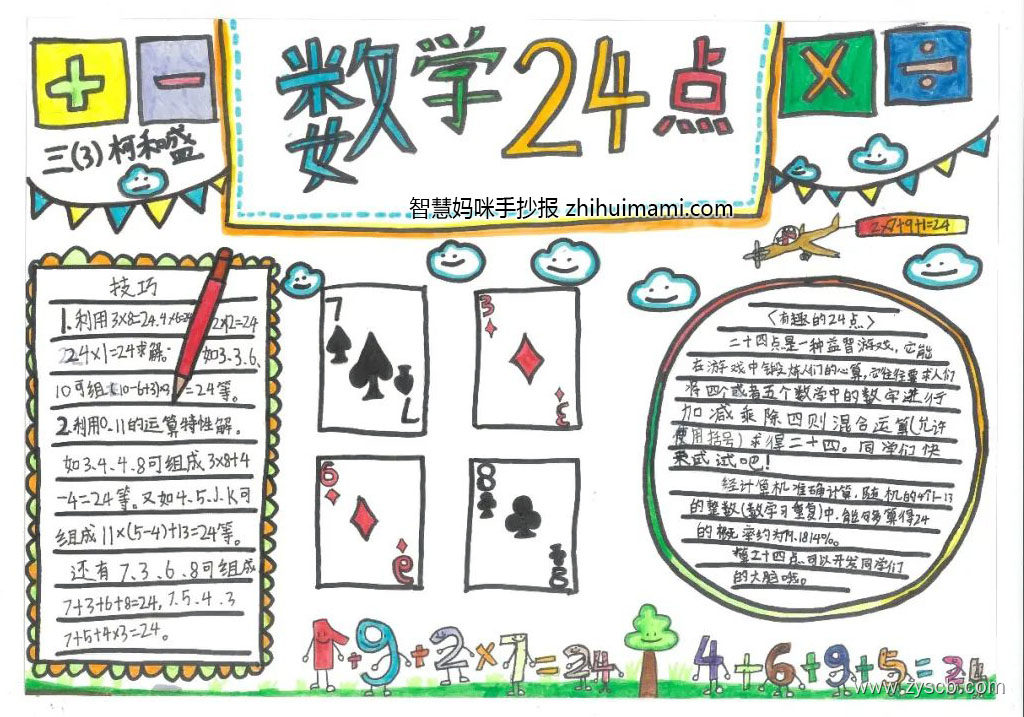 + - 数学24点 × ÷
三(3)柯和盛
智慧妈咪手抄报 zhihuimami.com
2×7+9+1=24
技巧
1.利用3×8=24.4×6=24 2×12=24
24×1=24求解. 如3.3.6、
10可组 (10-6+3) =24等。
2.利用0.11的运算特性解。
如3.4.4.8可组成 3×8+4
-4=24等。又如4.5.J.K可
组成 11×(5-4)+13=24等。
还有 7.3.6.8可组成
7+3+6+8=24, 7.5.4.3
7+5+4×3=24。
7
7
3
3
6
6
8
8
〈有趣的24点〉
二十四点是一种益智游戏,它能
在游戏中锻炼人们的心算,它往往要求人们
将四个或者五个数学中的数字进行
加减乘除四则混合运算(允许
使用括号)求得二十四。同学们快
来试试吧!
经计算机准确计算,随机的4个1-13
的整数(数学可重复)中.能够算得24
的概率约为79.1814%。
算二十四点可以开发同学们
的大脑哦。
1+9+2×7=24
4+6+9+5=24
www.zyscb.com